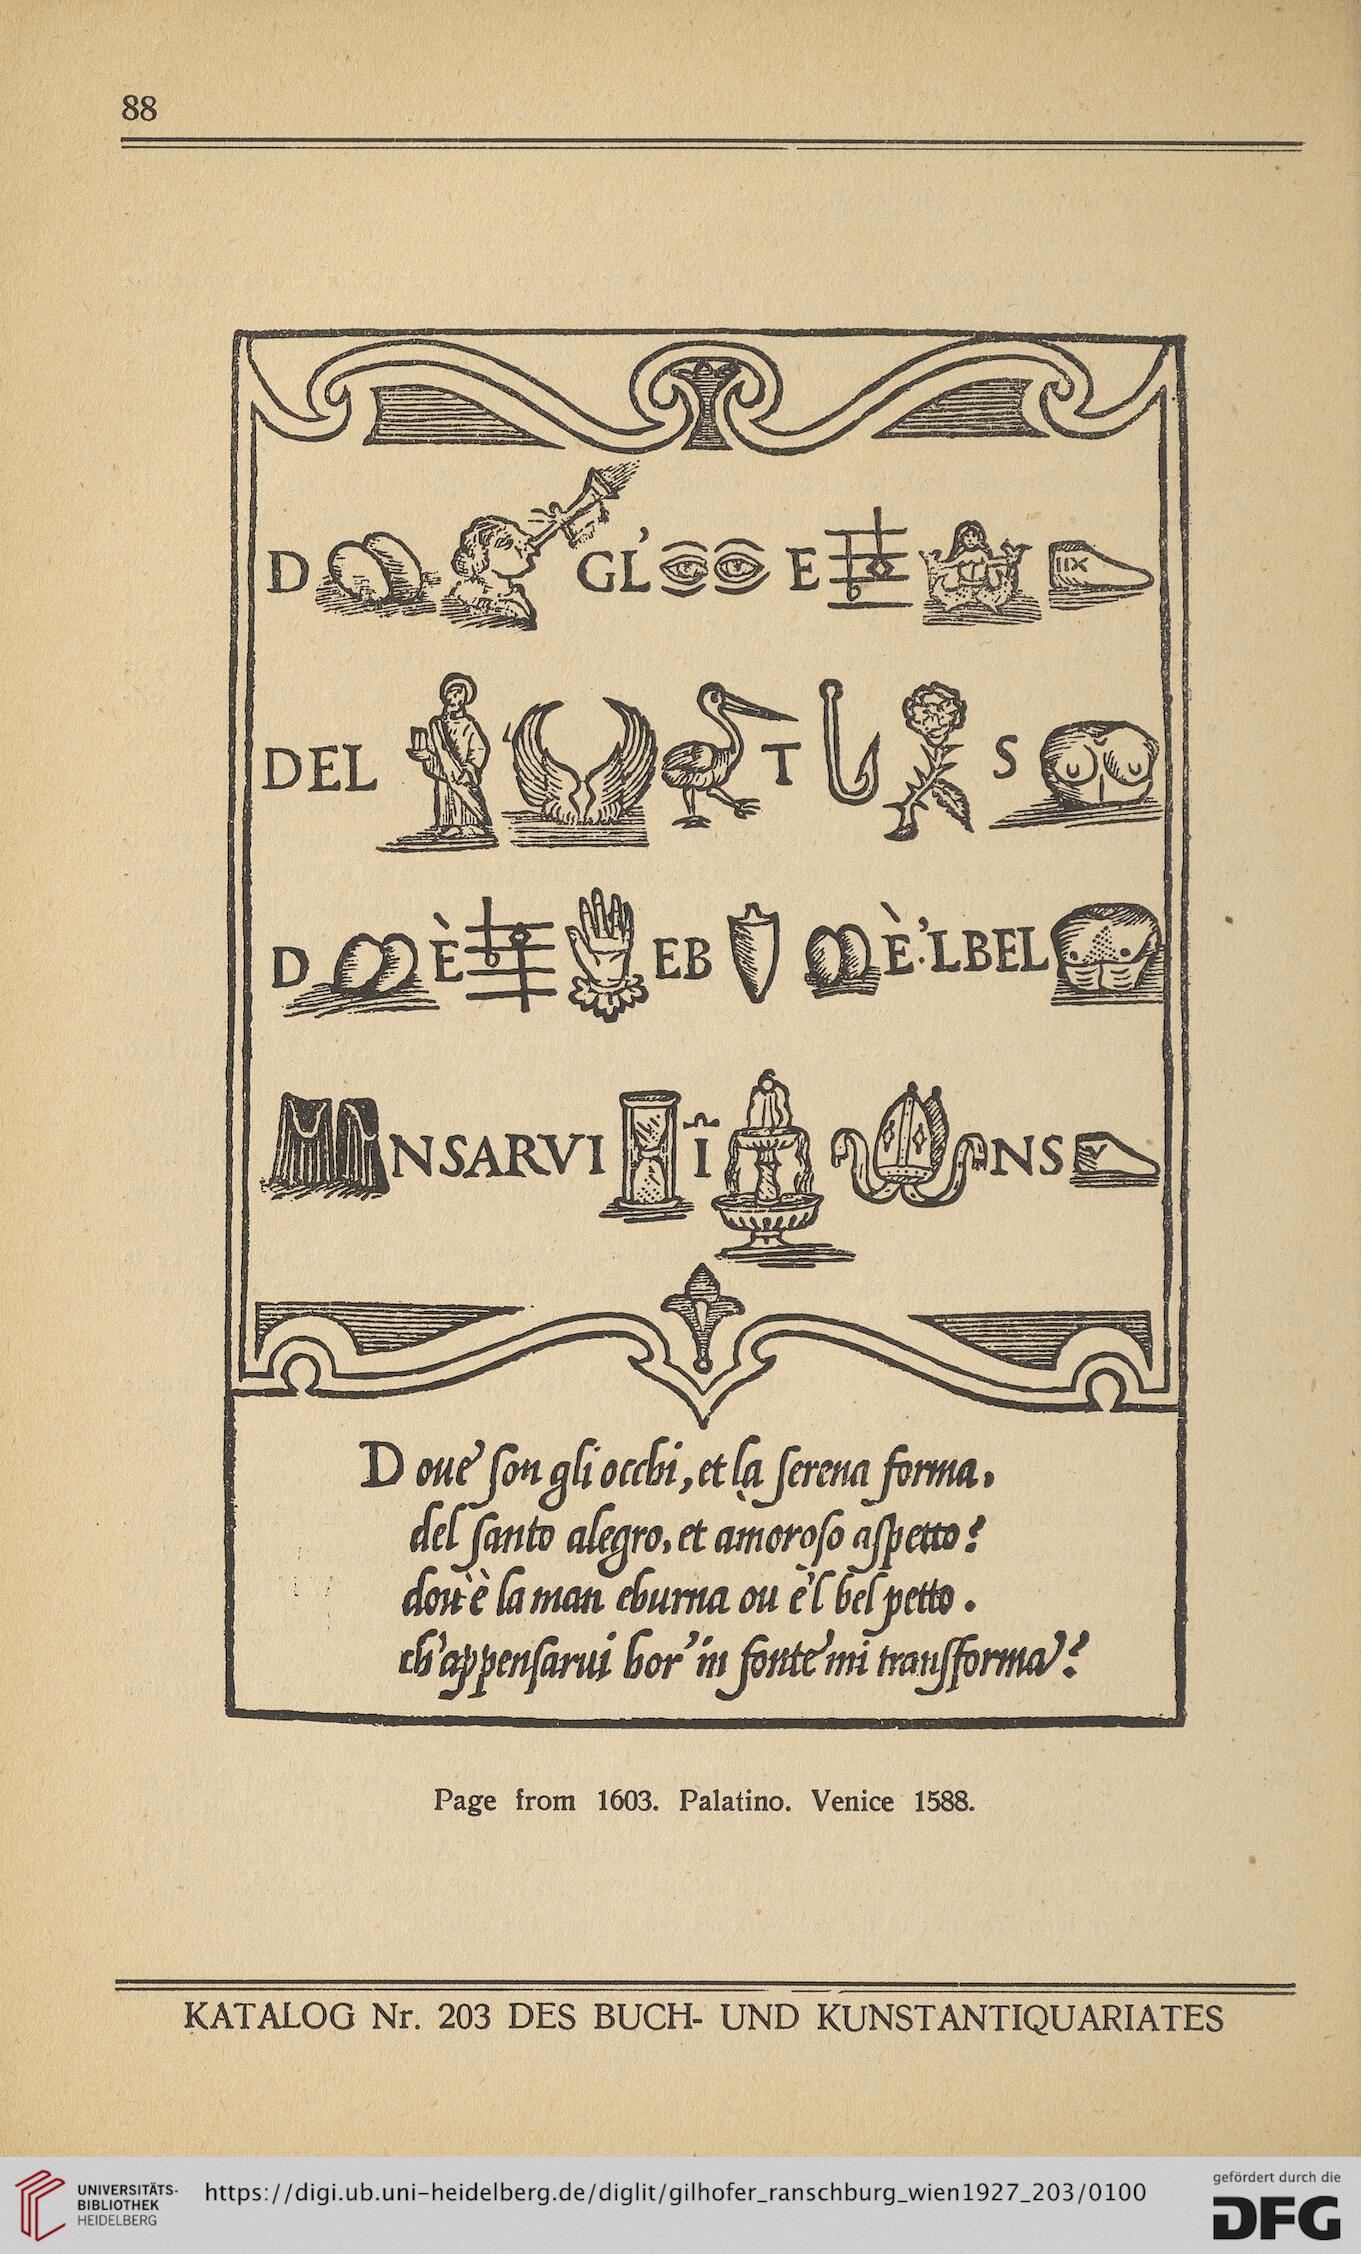 88
D GL' E IIX
DEL ' T S
D È EB È·'LBEL
NSARVI I NS V
D oue' ſon gli occhi, et la ſerena forma.
del ſanto alegro, et amoroſo aſpetto?
dou'è la man eburna ou è'l bel petto.
ch'appenſarui hor' in fonte' mi tranſforma'?
Page from 1603. Palatino. Venice 1588.
KATALOG Nr. 203 DES BUCH- UND KUNSTANTIQUARIATES
UNIVERSITÄTS-
BIBLIOTHEK
HEIDELBERG
https://digi.ub.uni-heidelberg.de/diglit/gilhofer_ranschburg_wien1927_203/0100
gefördert durch die
DFG